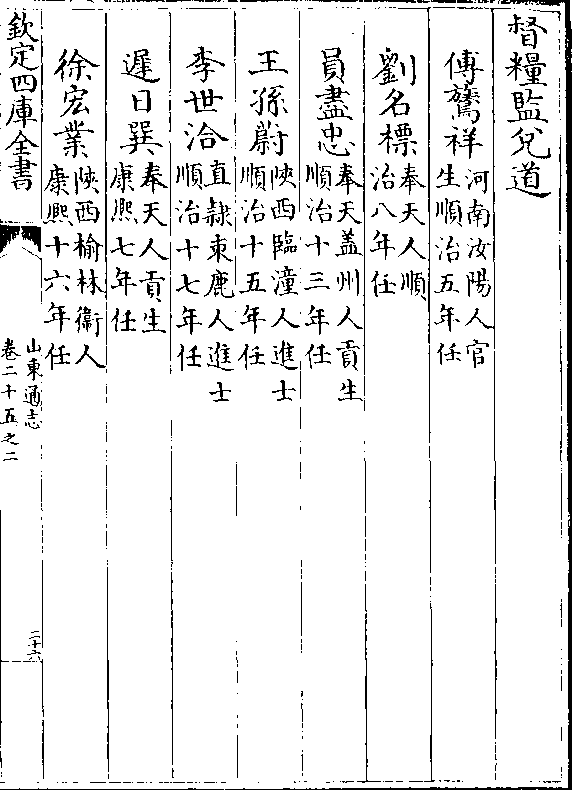 督糧監兌道
傅鸞祥河南汝陽人官生順治五年任
劉名標奉天人順治八年任
員盡忠奉天盖州人貢生順治十三年任
王孫蔚陜西臨潼人進士順治十五年任
李世洽直隸束鹿人進士順治十七年任
遲日巽奉天人貢生康熙七年任
徐宏業陜西榆林衞人康熙十六年任
欽定四庫全書
山東通志
卷二十五之二
二十六